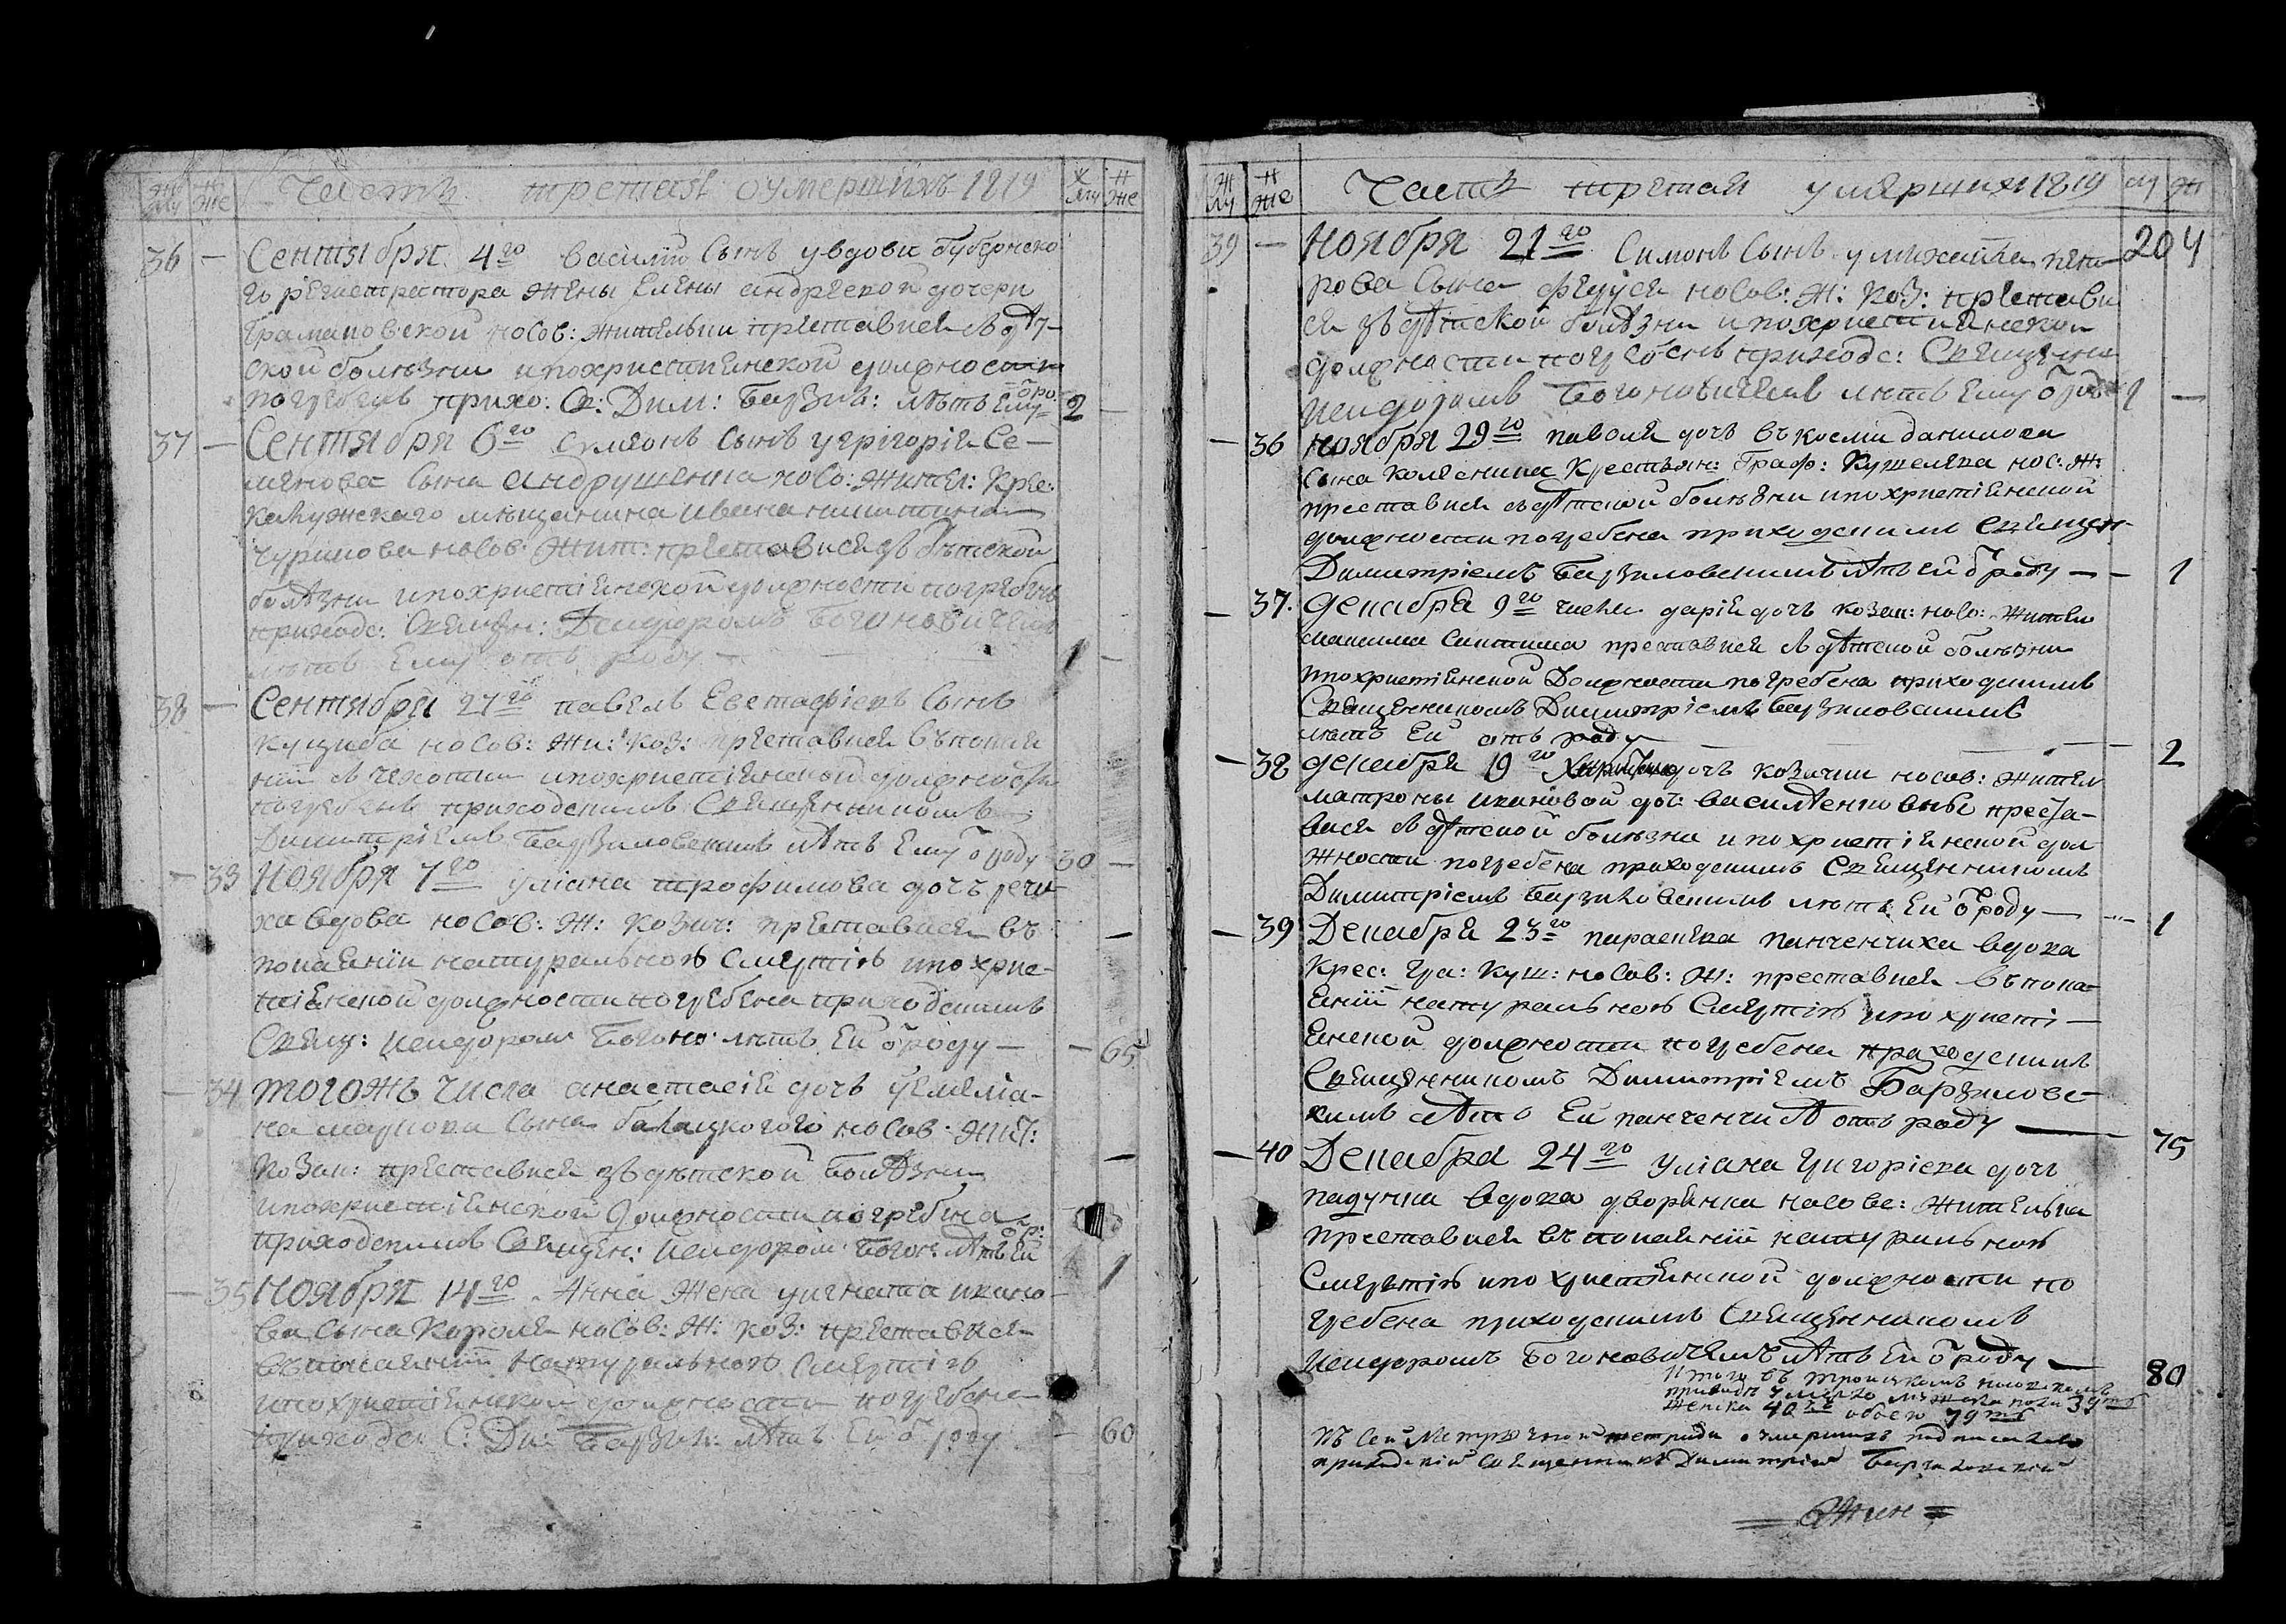 Часть третая оумершихъ 1819
36 — Сентября 4го василій Сынъ у вдови Губернско
го регистратора жены Елены андреевой дочери
носов: жительки преставися въ дѣт-
ской болѣзни и по християнской должности
погребенъ прихо: С: Дим: Барзил: лѣтъ Ему о ро: 2 —
37 — Сентября 6го Симеонъ Сынъ у григорія Се-
менова Сына андрущенка носо: жител: Кре:
калужскаго мещанина Ивана никитина
чурилова носов: жит: преставися зъ дѣтской
болѣзни и по христіянской должности погребенъ
приходс: Священ: Исидоромъ Богоновичемъ
лѣтъ Ему отъ роду — 1 —
38 — Сентября 27го павелъ Евстафіевъ Сынъ
Куцуба носов: жи: коз: преставися въ покая
ніи въ чехотки и по христіянской должности
погребенъ приходскимъ Священникомъ
Димитріемъ Барзиловскимъ лѣтъ Ему о роду 50 —
— 33 Ноября 7го уліана трофимова дочь
ха вдова носов: ж: козач: преставися въ
покаяніи натуральною Смертію и по хрис-
тіянской должности погребена приходскимъ
Свящ: Исидором Богоно: лѣтъ Ей о роду — — 65
— 34 тогожъ числа анастасія дочь у Емелiа-
на маркова Сына балацкогого носов: жит:
козак: преставися зъ дѣтской болѣзни
и по христіянской должности погребена
приходскимъ Священ: Исидором Богон: лѣтъ Ей о р: 1
— 35 Ноября 14го Анна жена у игната ивано-
ва сына Короля носов: ж: коз: преставися
въ покаяніи натуральною Смертію
и по христіянской должности погребена
приходс: С: Ди: Барзил: лѣтъ Ей о роду — 60
Часть третая умерших 1819 204
39 — Ноября 21го Симонъ Сынъ у михайла пет-
рова Сына федуся носов: ж: коз: престави
ся зъ дѣтской болѣзни и по християнской
должности погребенъ приходс: Священни
Исидоромъ Богоновичемъ лѣтъ Ему о роду 1 —
— 36 Ноября 29го дочь въ косми данилова
Сына Колесника Крестьян: Граф: Кушелева нос: ж:
преставися въ дѣтской болѣзни и по христіянской
должности погребена приходскимъ Священ-
Димитріемъ Барзиловскимъ лѣтъ ей о роду — — 1
— 37. Декабря 9го числа дарія дочь козак: носо: жителя
максима преставися въ дѣтской болѣзни
и по христіянской Должности погребена приходскимъ
Священникомъ Димитріемъ Барзиловскимъ
лѣтъ Ей отъ роду — 2
— 38 Декабря 19го дочь козачки носов: жител
матроны ивановой доч: василѣенковны преста-
вися въ дѣтской болѣзни и по христіянской дол
жности погребена приходскимъ Священникомъ
Димитріемъ Барзиловскимъ лѣтъ Ей о роду — 1
— 39 Декабря 23го параскева панченчиха вдова
Крес: Гра: Куш: носов: ж: преставися въ пока-
яніи натуральною Смертію и по христі-
янской должности погребена приходскимъ
Священникомъ Димитріемъ Барзиловс-
кимъ лѣтъ Ей панченчихѣ отъ роду — 75
— 40 Декабря 24го уліана григоріева дочь
падунка вдова дворянка носове: жителька
преставися въ покаяніи натуральною
Смертію и по христіянской должности по
гребена приходскимъ Священникомъ
Исидоромъ Богоновичемъ лѣтъ Ей о роду — 80
Итого въ троицкомъ носовскомъ
приходѣ умерло мужеска пола 39ть
женска 40къ обоего 79ть
Къ Сей Метрической тетради о умершихъ подписался
приходскій Священникъ Димитрій Барзиловскій